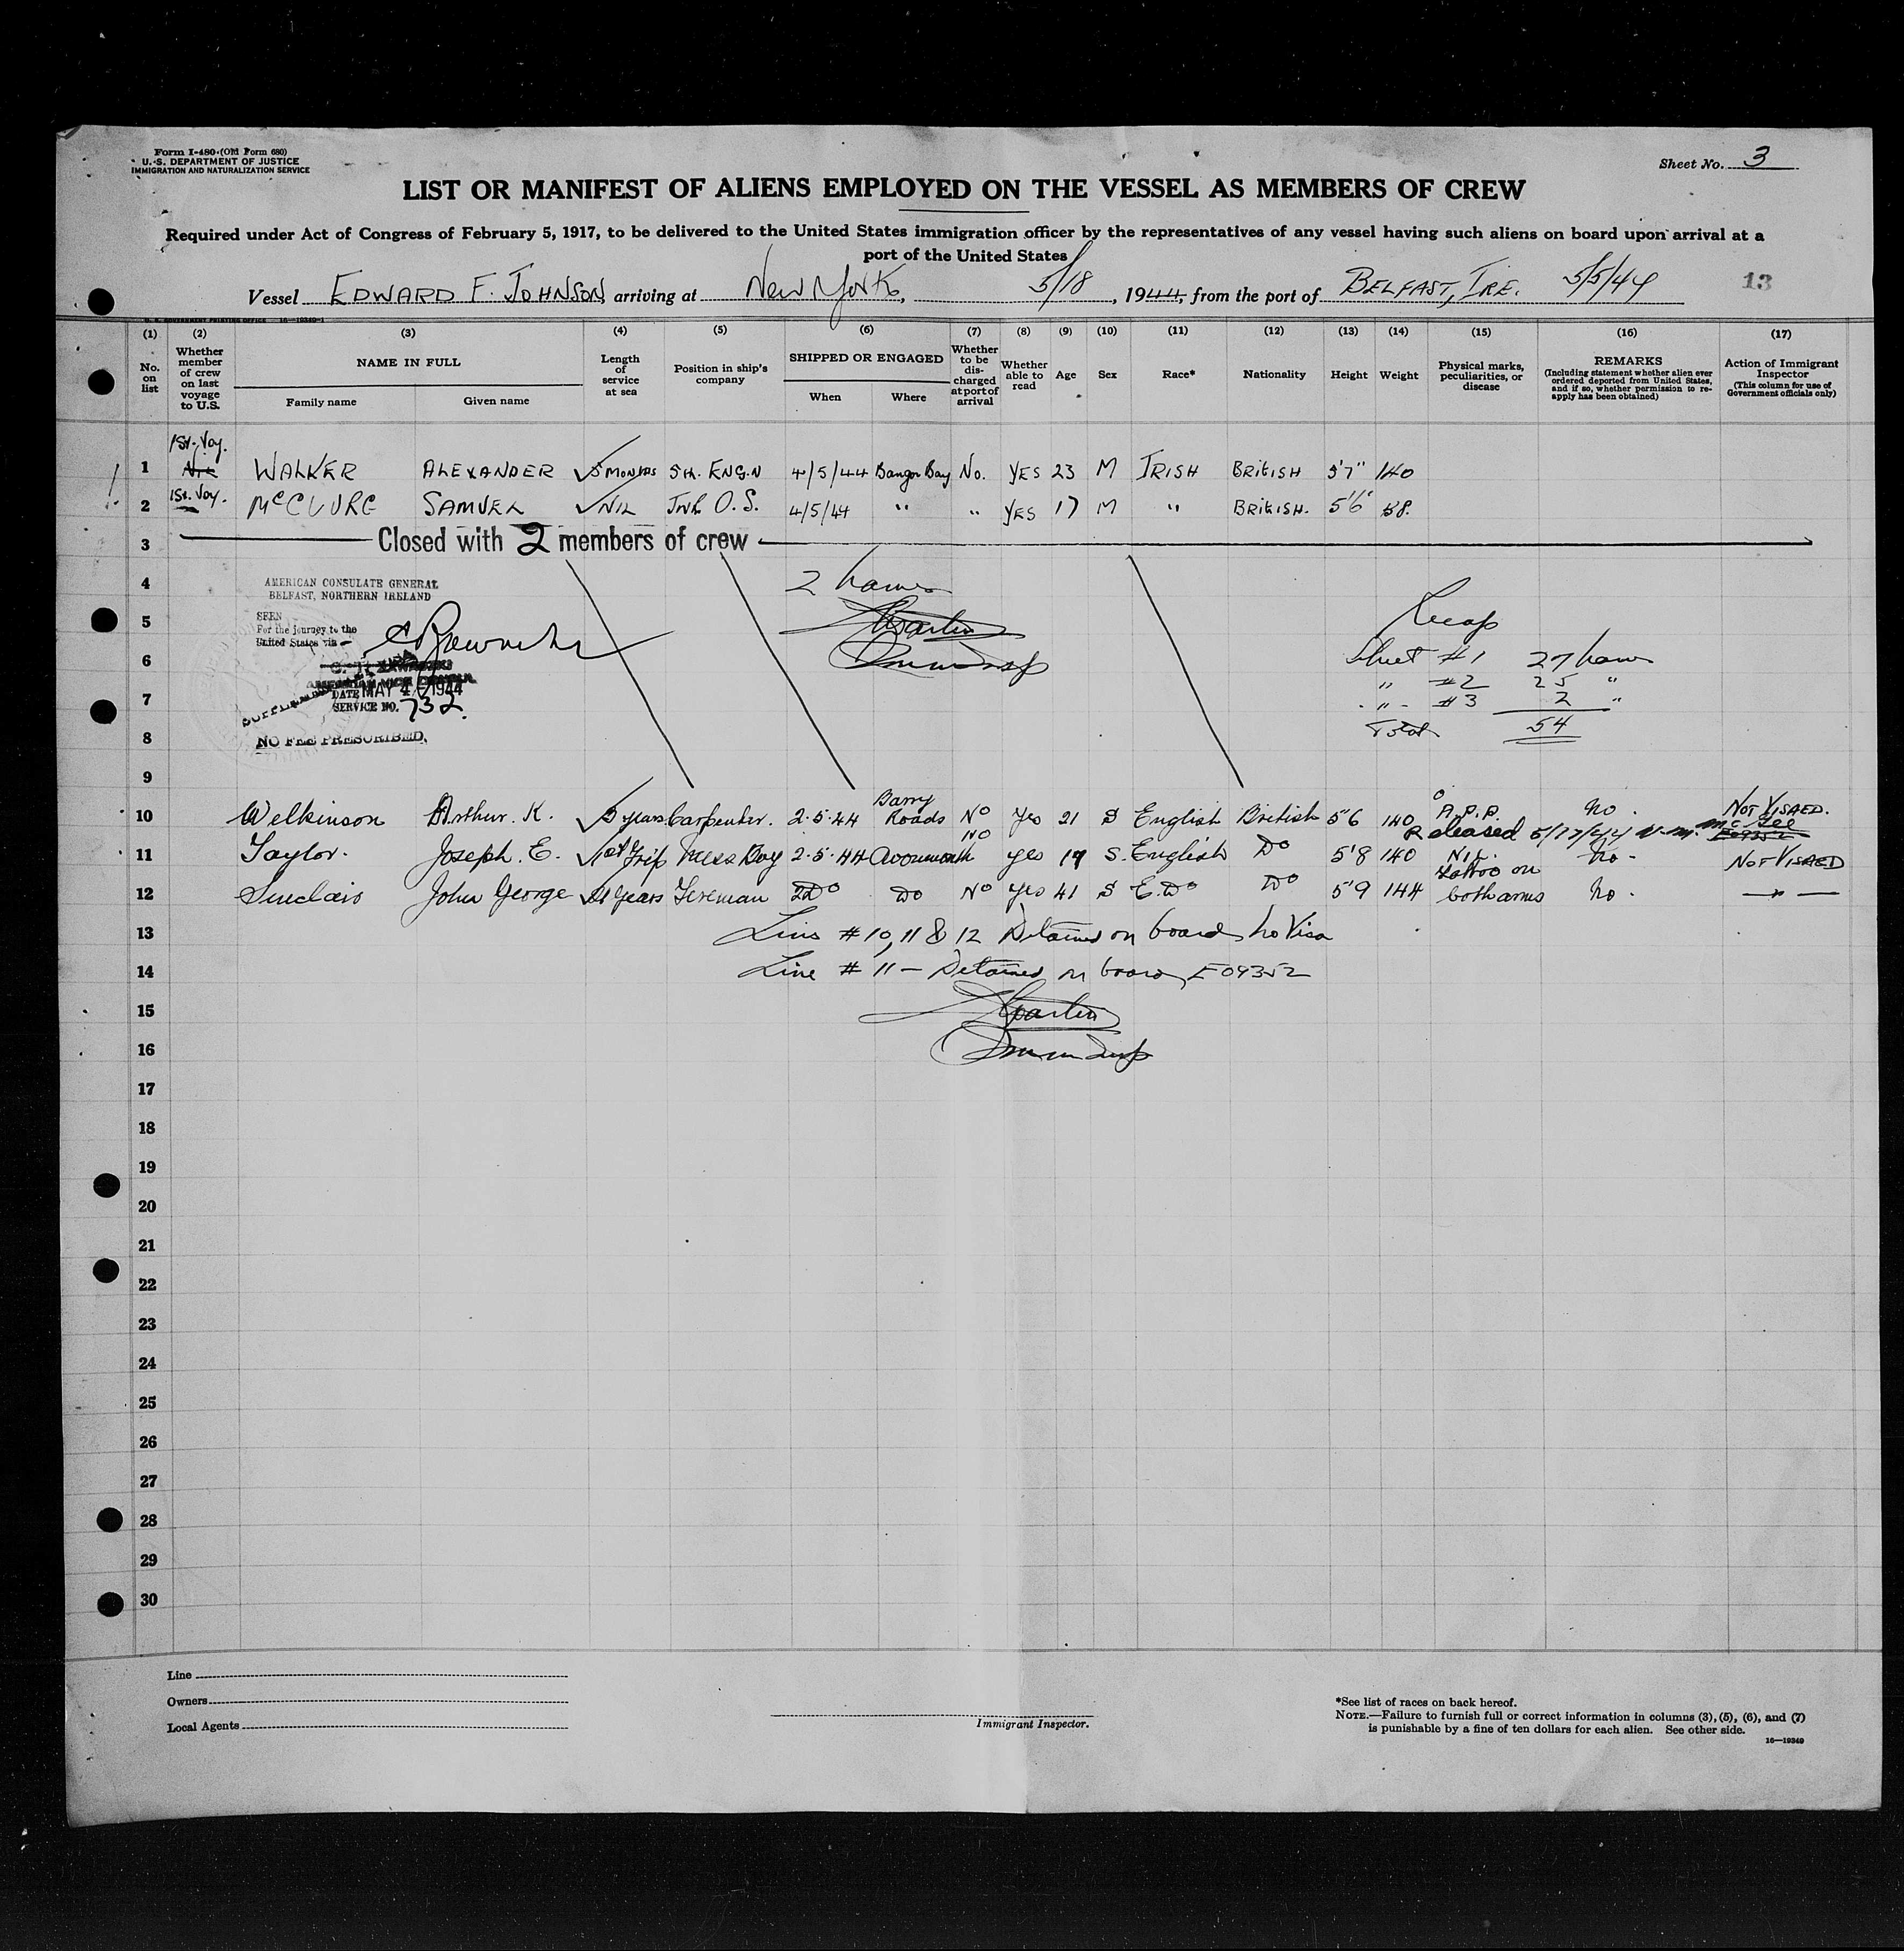 Form I-480 (Old Form 680)
U. S. DEPARTMENT OF JUSTICE
IMMIGRATION AND NATURALIZATION SERVICE
Sheet No. 3
LIST OR MANIFEST OF ALIENS EMPLOYED ON THE VESSEL AS MEMBERS OF CREW
Required under Act of Congress of February 5, 1917, to be delivered to the United States immigration officer by the representatives of any vessel having such aliens on board upon arrival at a
port of the United States
Vessel EDWARD F. JOHNSON, arriving at New York, 5/18, 1944, from the port of BELFAST, IRE. 5/5/44 13
U. S. GOVERNMENT PRINTING OFFICE 16—19349-1
(1) (2) (3) (4) (5) (6) (7) (8) (9) (10) (11) (12) (13) (14) (15) (16) (17)
No. on list
Whether member of crew on last voyage to U.S.
NAME IN FULL
Family name
Given name
Length of service at sea
Position in ship's company
SHIPPED OR ENGAGED
When
Where
Whether to be discharged at port of arrival
Whether able to read
Age
Sex
Race*
Nationality
Height
Weight
Physical marks, peculiarities, or disease
REMARKS
(Including statement whether alien ever ordered deported from United States, and if so, whether permission to reapply has been obtained)
Action of Immigrant Inspector
(This column for use of Government officials only)
1st. Voy.
1 Nil WALKER ALEXANDER 5 MONTHS 5th. ENG.N 4/5/44 Bangor Bay No. YES 23 M IRISH BRITISH 5'7" 140
2 1st. Voy. McCLURE SAMUEL NIL JNR O.S. 4/5/44 " " YES 17 M " BRITISH. 5'6"
3 Closed with 2 members of crew
4
5
6
7
8
9
AMERICAN CONSULATE GENERAL
BELFAST, NORTHERN IRELAND
SEEN
For the journey to the
United States via
DATE MAY 4 1944
SERVICE NO. 732
NO FEE PRESCRIBED.
2
Recap
Sheet #1 27
" #2 25 "
" #3 2 "
Total 54
10 Wilkinson Arthur. K. 5 years Carpenter. 2.5.44 Barry Roads No Yes 21 S English British 5'6 140 A.P.P. No. NOT VISAED.
Released 5/17/44
11 Taylor. Joseph. E. 1st Trip Mess Boy 2.5.44 Avonmouth No yes 19 S. English Do 5'8 140 NIL. No. NOT VISAED
12 Sinclair John George 21 Years Fireman Do Do No Yes 41 S E. Do Do 5'9 144 tattoo on both arms No. — " —
13 Lines #10, 11 & 12 Detained on board no Visa
14 Line # 11 — Detained on board, E09352
15
16
17
18
19
20
21
22
23
24
25
26
27
28
29
30
Line
Owners
Local Agents
Immigrant Inspector.
*See list of races on back hereof.
NOTE.—Failure to furnish full or correct information in columns (3), (5), (6), and (7)
is punishable by a fine of ten dollars for each alien. See other side.
16—19349